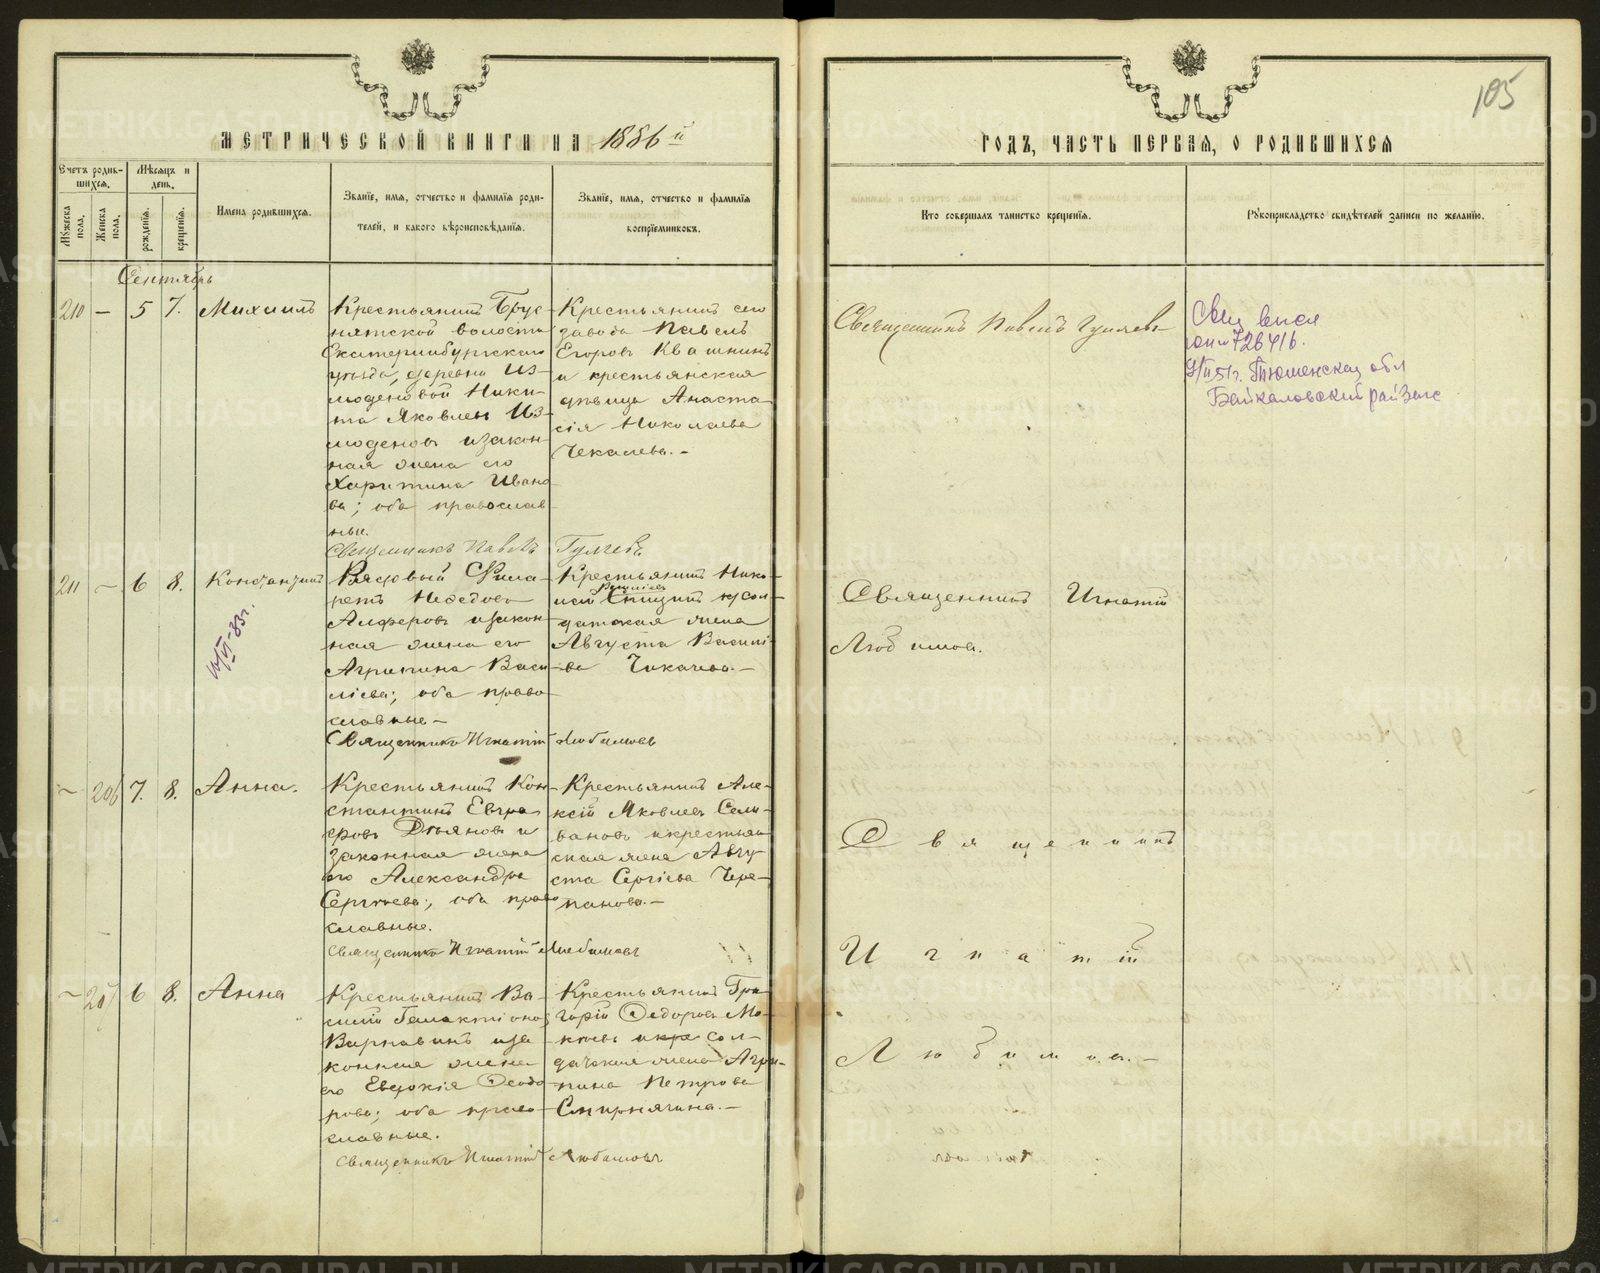 105
МЕТРИЧЕСКОЙ КНИГИ НА 1886 й
ГОДЪ, ЧАСТЬ ПЕРВАЯ, О РОДИВШИХСЯ
Счетъ родив-
шихся.
Мѣсяцъ и
день.
Мужеска пола.
Женска пола.
рожденія.
крещенія.
Имена родившихся.
Званіе, имя, отчество и фамилія роди-
телей, и какого вѣроисповѣданія.
Званіе, имя, отчество и фамилія
воспріемниковъ.
Кто совершалъ таинство крещенія.
Рукоприкладство свидѣтелей записи по желанію.
Сентябрь
210 — 5 7. Михаилъ
Крестьянинъ Брус-
нятской волости
Екатеринбургскаго
уѣзда, деревни Из-
моденовой Ники-
та Яковлевъ Из-
моденовъ и закон-
ная жена его
Харитина Ивано-
ва; оба православ-
ные.
Крестьянинъ сего
завода Павелъ
Егоровъ Квашнинъ
и крестьянская
дѣвица Анаста-
сія Николаева
Чекалева.—
Священникъ Павелъ Гуляевъ
Священникъ Павелъ Гуляевъ
726416.
Тюменская обл
Байкаловский райЗагс
211 — 6 8. Константинъ
Рядовый Фила-
ретъ Нефедовъ
Алферовъ и закон-
ная жена его
Агрипина Васи-
ліева; оба право-
славные—
Крестьянинъ Нико-
лай
датская жена
Августа Василі-
ева Чикачева.—
Священникъ Игнатій Любимовъ
Священникъ Игнатій
Любимовъ.
— 206 7. 8. Анна.
Крестьянинъ Кон-
стантинъ Евгра-
фовъ Деяновъ и
законная жена
его Александра
Сергіева; оба право-
славные.
Крестьянинъ Але-
ксѣй Яковлевъ Сели-
вановъ и крестьян-
ская жена Авгу-
ста Сергіева Чере-
панова.—
Священникъ Игнатій Любимовъ
Священникъ
Игнатій
Любимовъ.—
— 207 6 8. Анна
Крестьянинъ Ва-
силій Галактіоновъ
Варнавинъ и за-
конная жена
его Евдокія Ѳеодо-
рова; оба право-
славные.
Крестьянинъ Гри-
горій Ѳедоровъ Мо-
кѣевъ и сол-
датская жена Агри-
пина Петрова
Смирнягина.—
Священникъ Игнатій Любимовъ